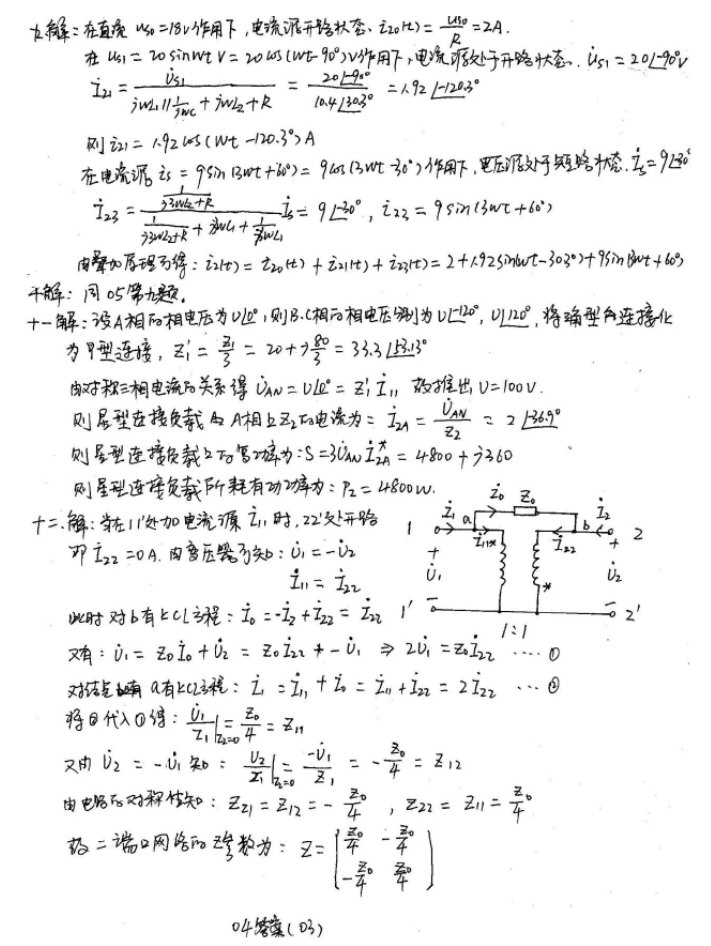 九.解:在直流 us0=18V作用下,电流源开路状态. i20(t) = us0/R = 2A.
在 us1 = 20 sinwt V = 20 cos(wt-90°)V作用下,电流源处于开路状态. U̇s1 = 20∠-90°V
İ21 = U̇s1 / (jwL1//(1/jwc) + jwL2 + R) = 20∠-90° / 10.4∠30.3° = 1.92∠-120.3°
则 i21 = 1.92 cos(wt -120.3°)A
在电流源 is = 9sin(3wt+60°) = 9cos(3wt-30°)作用下,电压源处于短路状态. İs = 9∠-30°
İ23 = İs = 9∠-30°, i23 = 9 sin(3wt+60°)
由叠加原理可得: i2(t) = i20(t) + i21(t) + i23(t) = 2+1.92sin(wt-30.3°)+9sin(3wt+60°)
十解: 同05第九题。
十一解:设A相的相电压为U∠0°,则B.C相的相电压分别为U∠-120°, U∠120°, 将三角型连接化
为Y型连接, Z1' = Z1/3 = 20+j80/3 = 33.3∠53.13°
由对称三相电流的关系得 U̇AN = U∠0° = Z1' İ11 故推出 U=100V.
则星型连接负载的A相上Z2的电流为: İ2A = U̇AN/Z2 = 2∠-36.9°
则星型连接负载上的复功率为: S=3U̇AN İ2A* = 4800+j3600
则星型连接负载所耗有功功率为: P2 = 4800W.
十二.解:当在11'处加电流源 İ1 时, 22'处开路
即 İ2 = 0 A. 由变压器可知: U̇1 = -U̇2
İ11 = İ22
此时对b有KCL方程: İ0 = -İ2 + İ22 = İ22
又有: U̇1 = Z0İ0 + U̇2 = Z0İ22 + -U̇1 ⇒ 2U̇1 = Z0İ22 ····①
对结点a有KCL方程: İ1 = İ11 + İ0 = İ11 + İ22 = 2İ22 ···②
将②代入①得: U̇1/İ1 |I2=0 = Z0/4 = Z11
又由 U̇2 = -U̇1 知: U̇2/İ1 |I2=0 = -U̇1/İ1 = -Z0/4 = Z12
由电路的对称性知: Z21 = Z12 = -Z0/4 , Z22 = Z11 = Z0/4
故二端口网络的Z参数为: Z = [Z0/4 -Z0/4
-Z0/4 Z0/4]
İ0 Z0
1 İ1 a b İ2 2
+ İ11 * İ22 +
U̇1 U̇2
*
1' - - 2'
1:1
04答案(03)